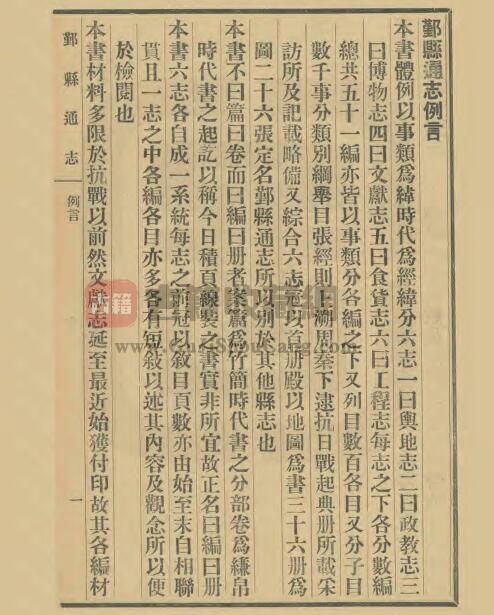 鄞縣通志例言
本書體例以事類爲緯時代爲經緯分六志一曰輿地志二曰政教志三
曰博物志四曰文獻志五曰食貨志六曰工程志每志之下各分數編
總共五十一編亦皆以事類分各編之下又列目數百各目又分子目
數千事分類別綱舉目張經則上溯周秦下逮抗日戰起典册所載采
訪所及記載略備又綜合六志冠以首册殿以地圖爲書三十六册爲
圖二十六張定名鄞縣通志所以別於其他縣志也
本書不曰篇曰卷而曰編曰册者案篇爲竹簡時代書之分部卷爲縑帛
時代書之起訖以稱今日積頁線裝之書實非所宜故正名曰編曰册
本書六志各自成一系統每志之前冠以敘目頁數亦由始至末自相聯
貫且一志之中各編各目亦多各有短敘以述其內容及觀念所以便
於檢閱也
本書材料多限於抗戰以前然文獻志延至最近始獲付印故其各編材
鄞縣通志
例言
一